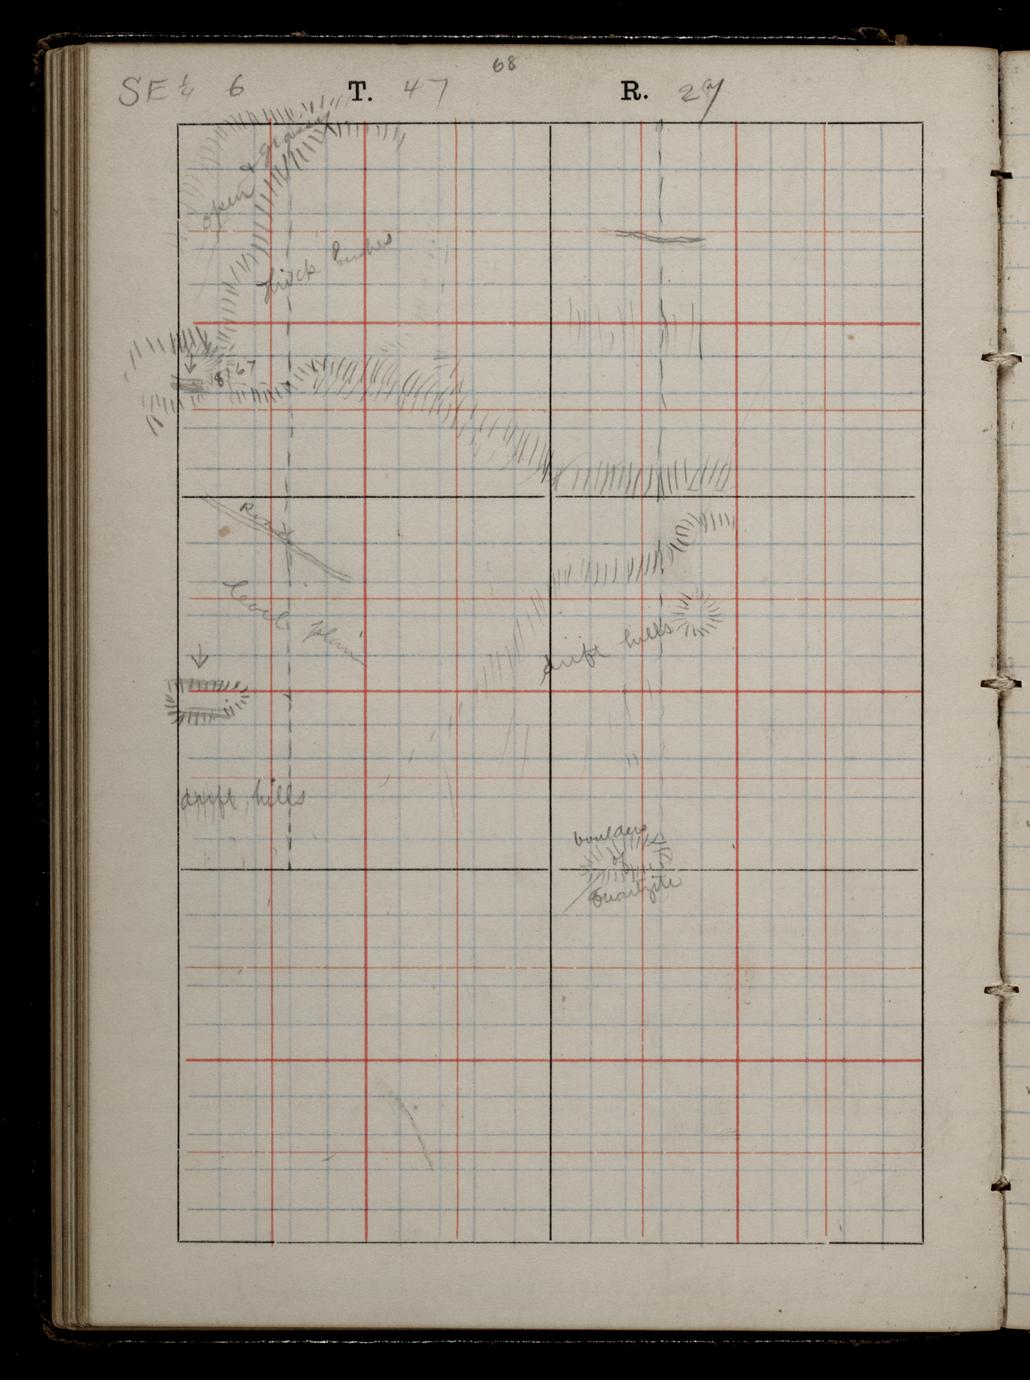 68
SE ¼ 6 T. 47 R. 27
open & grassy
thick bushes
8167
Road
level plain
drift hills
drift hills
boulders
of
Quartzite